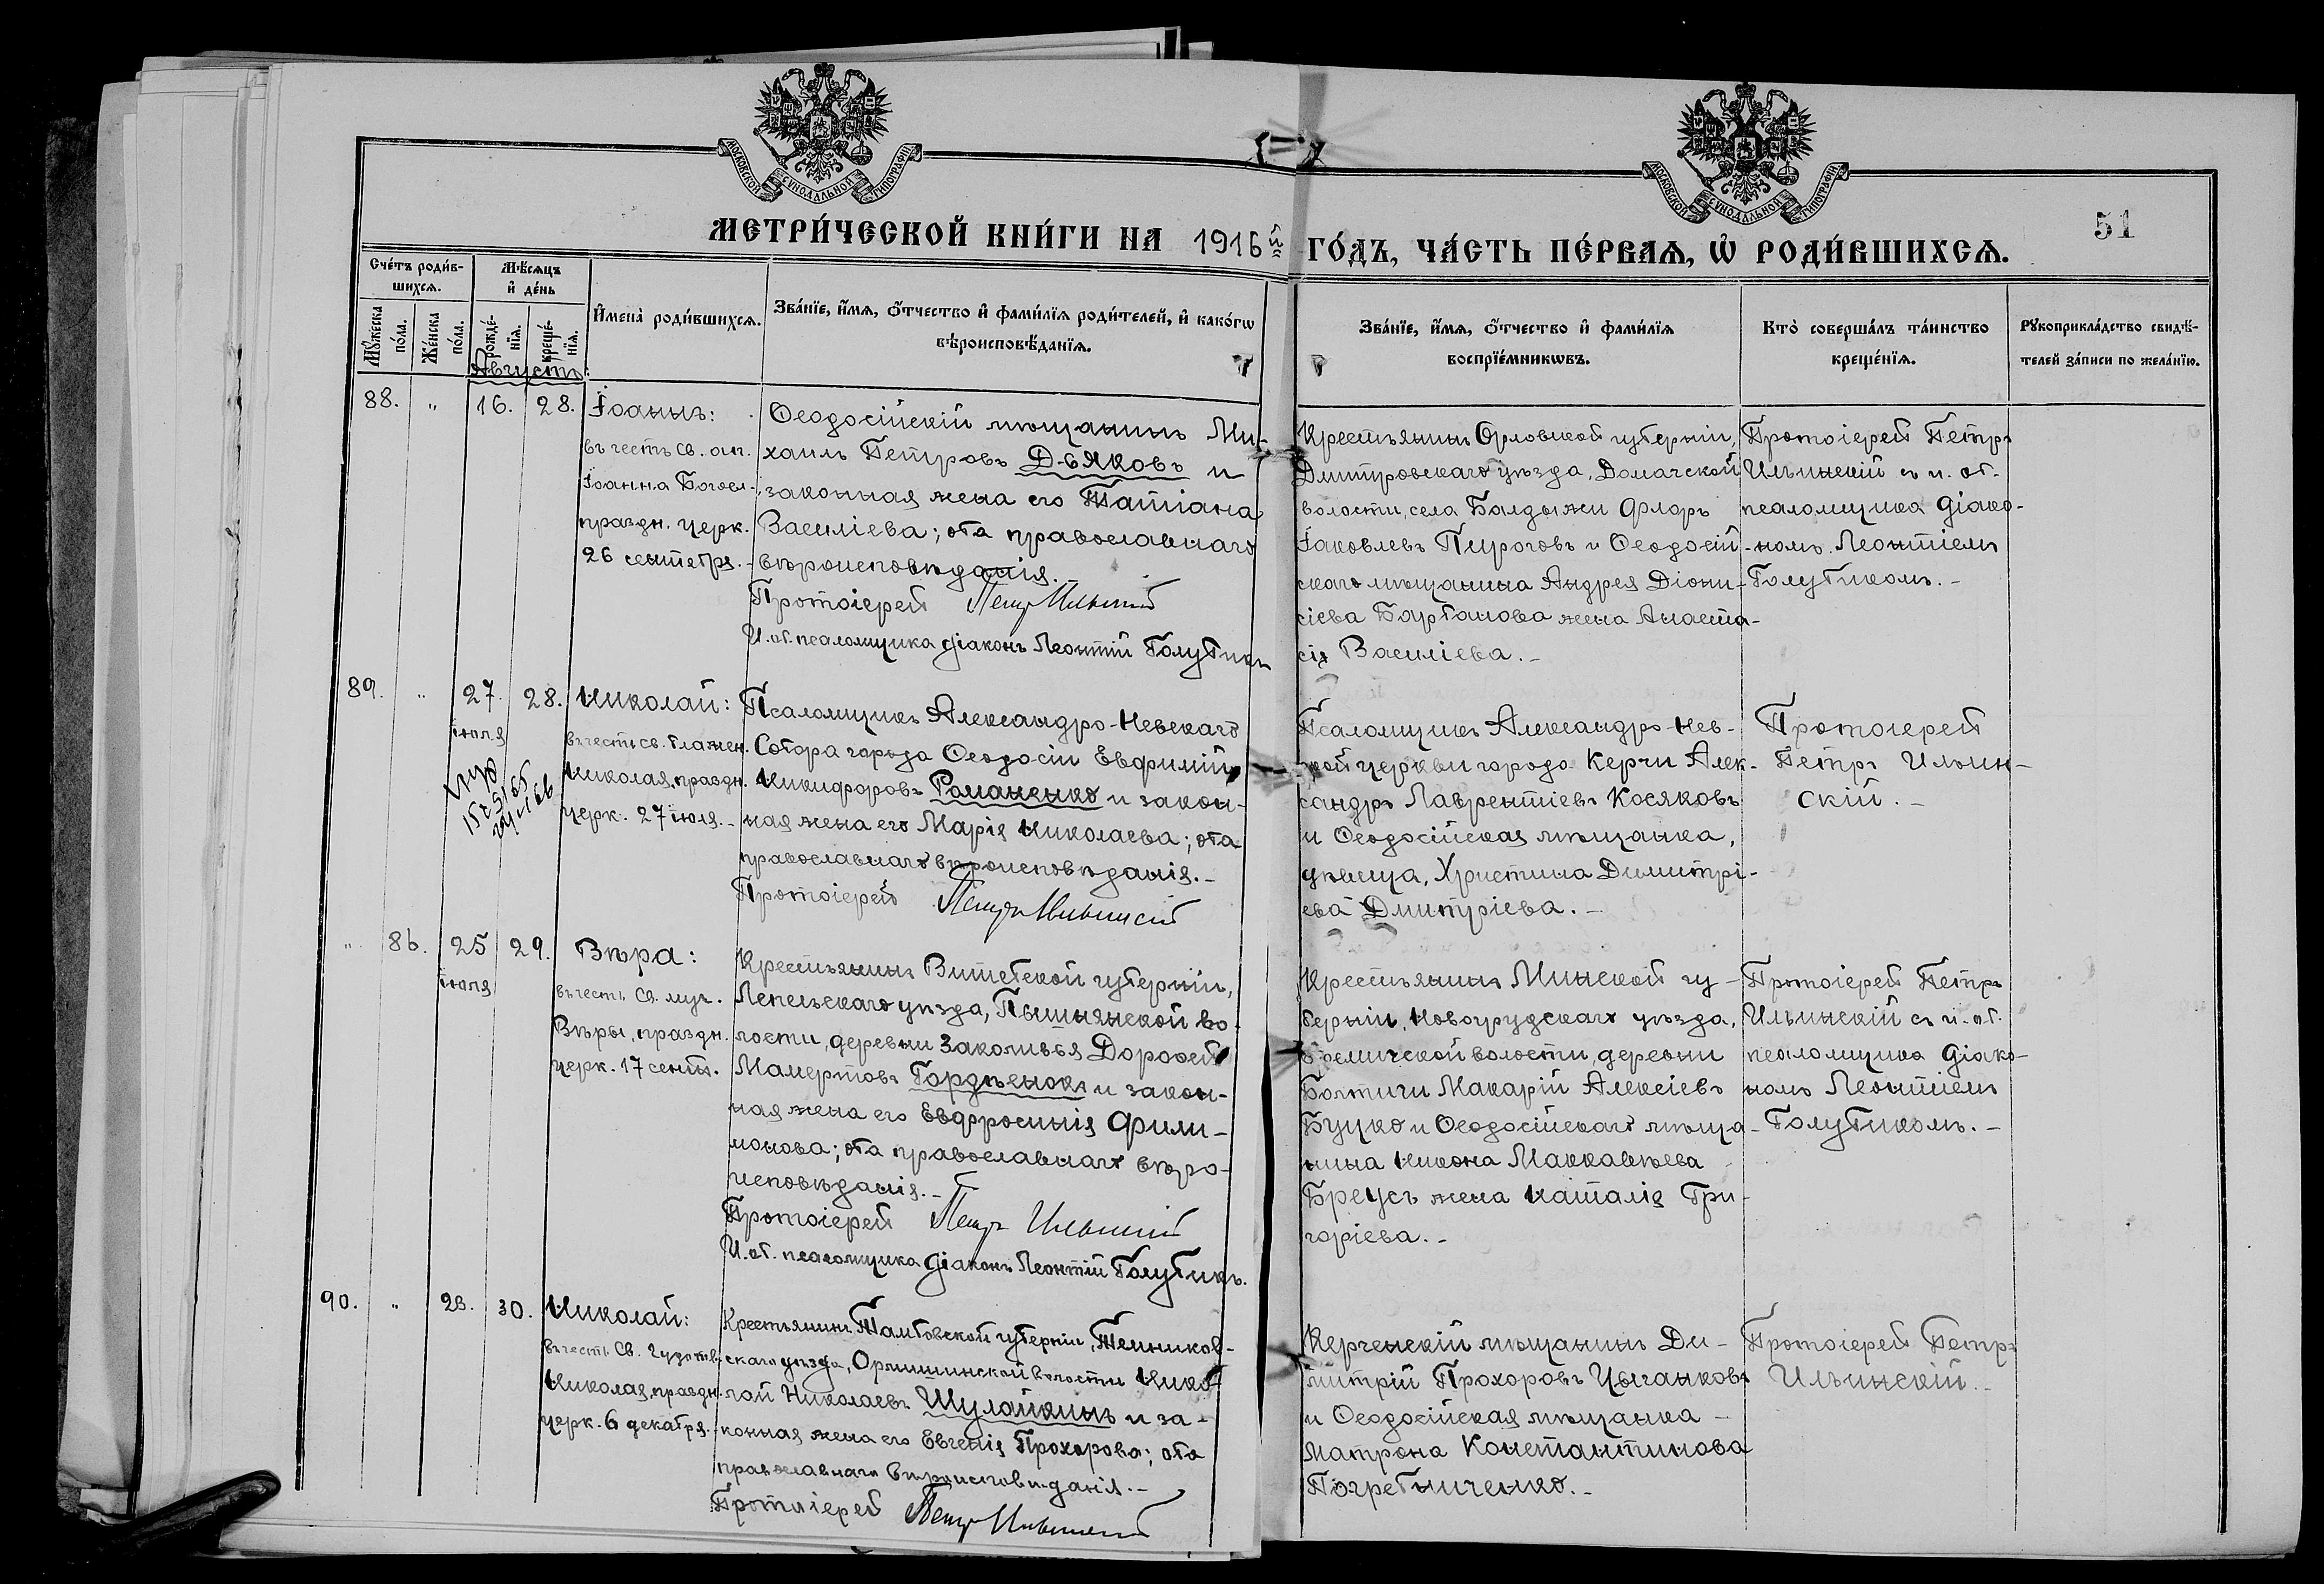 МОСКОВСКОЙ СУНОДАЛЬНОЙ ТИПОГРАФІИ
МОСКОВСКОЙ СУНОДАЛЬНОЙ ТИПОГРАФІИ
51
МЕТРИ́ЧЕСКОЙ КНИ́ГИ НА 1916й ГО́ДЪ, ЧА́СТЬ ПЕ́РВАѦ, Ѡ РОДИ́ВШИХСѦ.
Сче́тъ роди́в-
шихсѧ.
Мѣ́сѧцъ
и҆ де́нь
Мꙋ́жеска
по́ла.
Же́нска
по́ла.
рожде́-
нїѧ.
креще́-
нїѧ.
И҆мена̀ роди́вшихсѧ.
Зва́нїе, и҆́мѧ, ѻ҆́тчество и҆ фами́лїѧ роди́телей, и҆ како́гѡ
вѣроисповѣ́данїѧ.
Зва́нїе, и҆́мѧ, ѻ҆́тчество и҆ фами́лїѧ
воспрїе́мникѡвъ.
Кто̀ соверша́лъ та́инство
креще́нїѧ.
Рꙋкоприкла́дство свидѣ́-
телей за́писи по жела́нїю.
Августъ
88. " 16. 28. Іоаннъ:
въ честь св. ап.
Іоанна Богосл.
праздн. церк.
26 сентября.-
Ѳеодосійскій мѣщанинъ Ми-
хаилъ Петровъ Дьяковъ и
законная жена его Татіана
Василіева; оба православнаго
вѣроисповѣданія.-
Протоіерей Петръ Ильинскій
И. об. псаломщика діаконъ Леонтій Голубикъ
Крестьянинъ Орловской губерніи,
Дмитровскаго уѣзда, Домачской
волости, села Балдыжи Флоръ
Іаковлевъ Пироговъ и Ѳеодосій-
скаго мѣщанина Андрея Діони-
сіева Барбанова жена Анаста-
сія Василіева.-
Протоіерей Петръ
Ильинскій съ и. об.
псаломщика діако-
номъ Леонтіемъ
Голубикомъ.-
89. " 27. 28. Николай:
іюля
въ честь св. блажен.
Николая, праздн.
церк. 27 іюля.-
Псаломщикъ Александро-Невскаго
Собора города Ѳеодосіи Евфимій
Никифоровъ Романенко и закон-
ная жена его Марія Николаева; оба
православнаго вѣроисповѣданія.-
Протоіерей Петръ Ильинскій
Псаломщикъ Александро-Нев-
ской церкви города Керчи Алек-
сандръ Лаврентіевъ Косяковъ
и Ѳеодосійская мѣщанка,
дѣвица, Христина Димитрі-
ева Дмитріева.-
Протоіерей
Петръ Ильин-
скій.-
" 86. 25 29. Вѣра:
іюля
въ честь Св. муч.
Вѣры, праздн.
церк. 17 сент.
Крестьянинъ Витебской губерніи,
Лепельскаго уѣзда, Пышнянской во-
лости, деревни Заколивья Дороѳей
Мамертовъ Гордѣенокъ и закон-
ная жена его Евфросинія Фили-
монова; оба православнаго вѣро-
исповѣданія.-
Протоіерей Петръ Ильинскій
И. об. псаломщика діаконъ Леонтій Голубикъ.
Крестьянинъ Минской гу-
берніи, Новогрудскаго уѣзда,
волости, деревни
Макарій Алексіевъ
Буцко и Ѳеодосійскаго мѣща-
нина Никона Маккавѣева
Бреусъ жена Наталія Гри-
горіева.-
Протоіерей Петръ
Ильинскій съ и. об.
псаломщика діако-
номъ Леонтіемъ
Голубикомъ.-
90. " 23. 30. Николай:
въ честь Св. Чудотв.
Николая, праздн.
церк. 6 декабря.-
Крестьянинъ Тамбовской губерніи, Темников-
скаго уѣзда, волости Нико-
лай Николаевъ Шулайкинъ и за-
конная жена его Евгенія Прохорова; оба
православнаго вѣроисповѣданія.-
Протоіерей Петръ Ильинскій
Керченскій мѣщанинъ Ди-
митрій Прохоровъ Цыганковъ
и Ѳеодосійская мѣщанка-
Матрона Константинова
Погребниченко.-
Протоіерей Петръ
Ильинскій.-